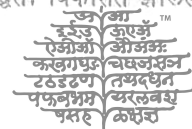 अ आ ™
इ ई उ ऊ ए
ऐ औ अं अः
क ख ग घ ङ च छ ज झ ञ
ट ठ ड ढ ण त थ द ध न
प फ ब भ म य र ल व श
ष स ह ळ क्ष ज्ञ